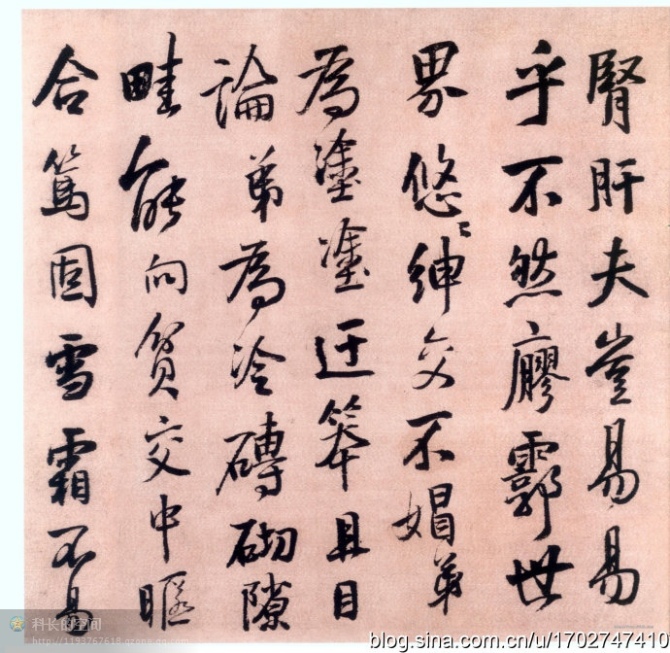 腎肝夫豈易易
乎不然廖霩世
界悠〻紳交不媢弟
為塗塗迂笨且目
論弟為冷磚砌隙
畦能向貧交中暱
合篤固雪霜不易
科长的空间
blog.sina.com.cn/u/1702747410